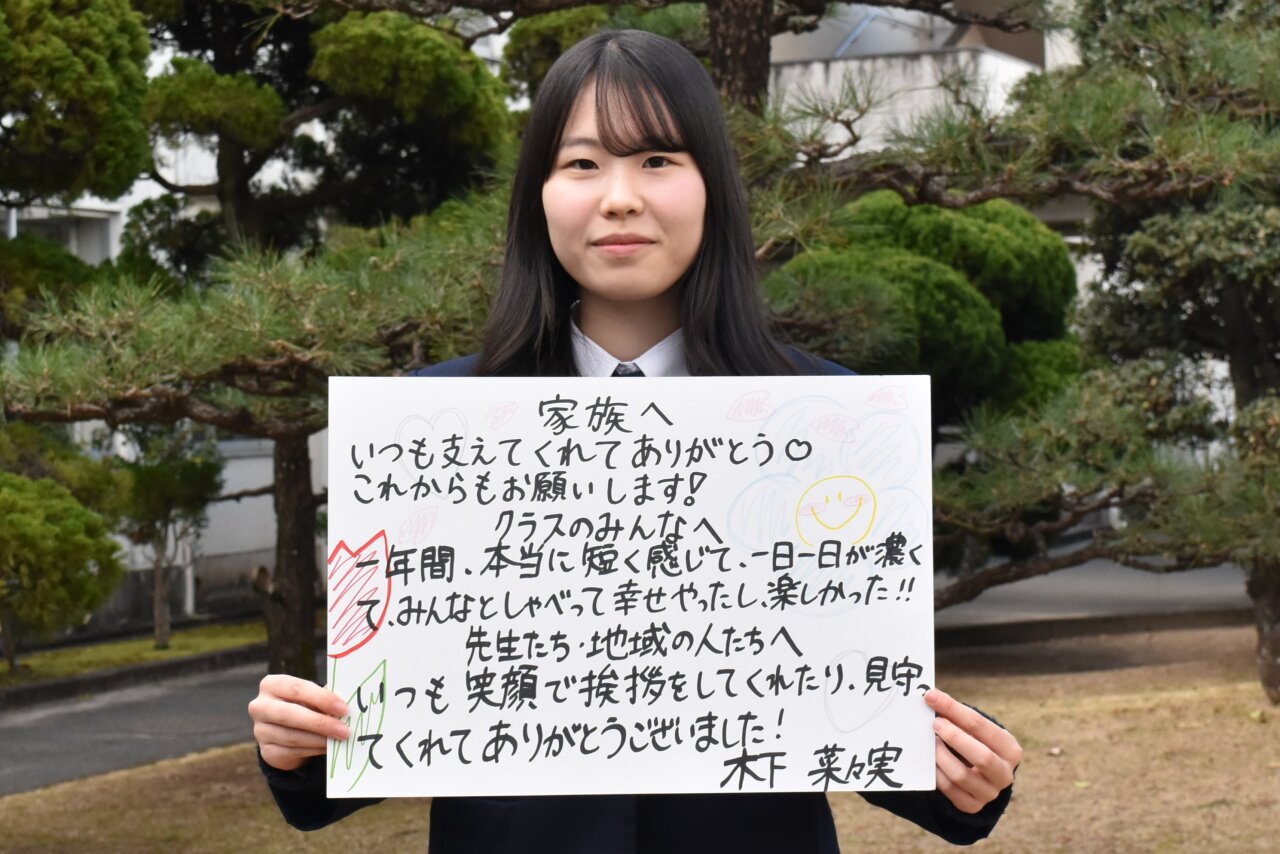 家族へ
いつも支えてくれてありがとう♡
これからもお願いします!
クラスのみんなへ
一年間、本当に短く感じて、一日一日が濃く
て、みんなとしゃべって幸せやったし、楽しかった!!
先生たち・地域の人たちへ
いつも笑顔で挨拶をしてくれたり、見守っ
てくれてありがとうございました!
木下 菜々実